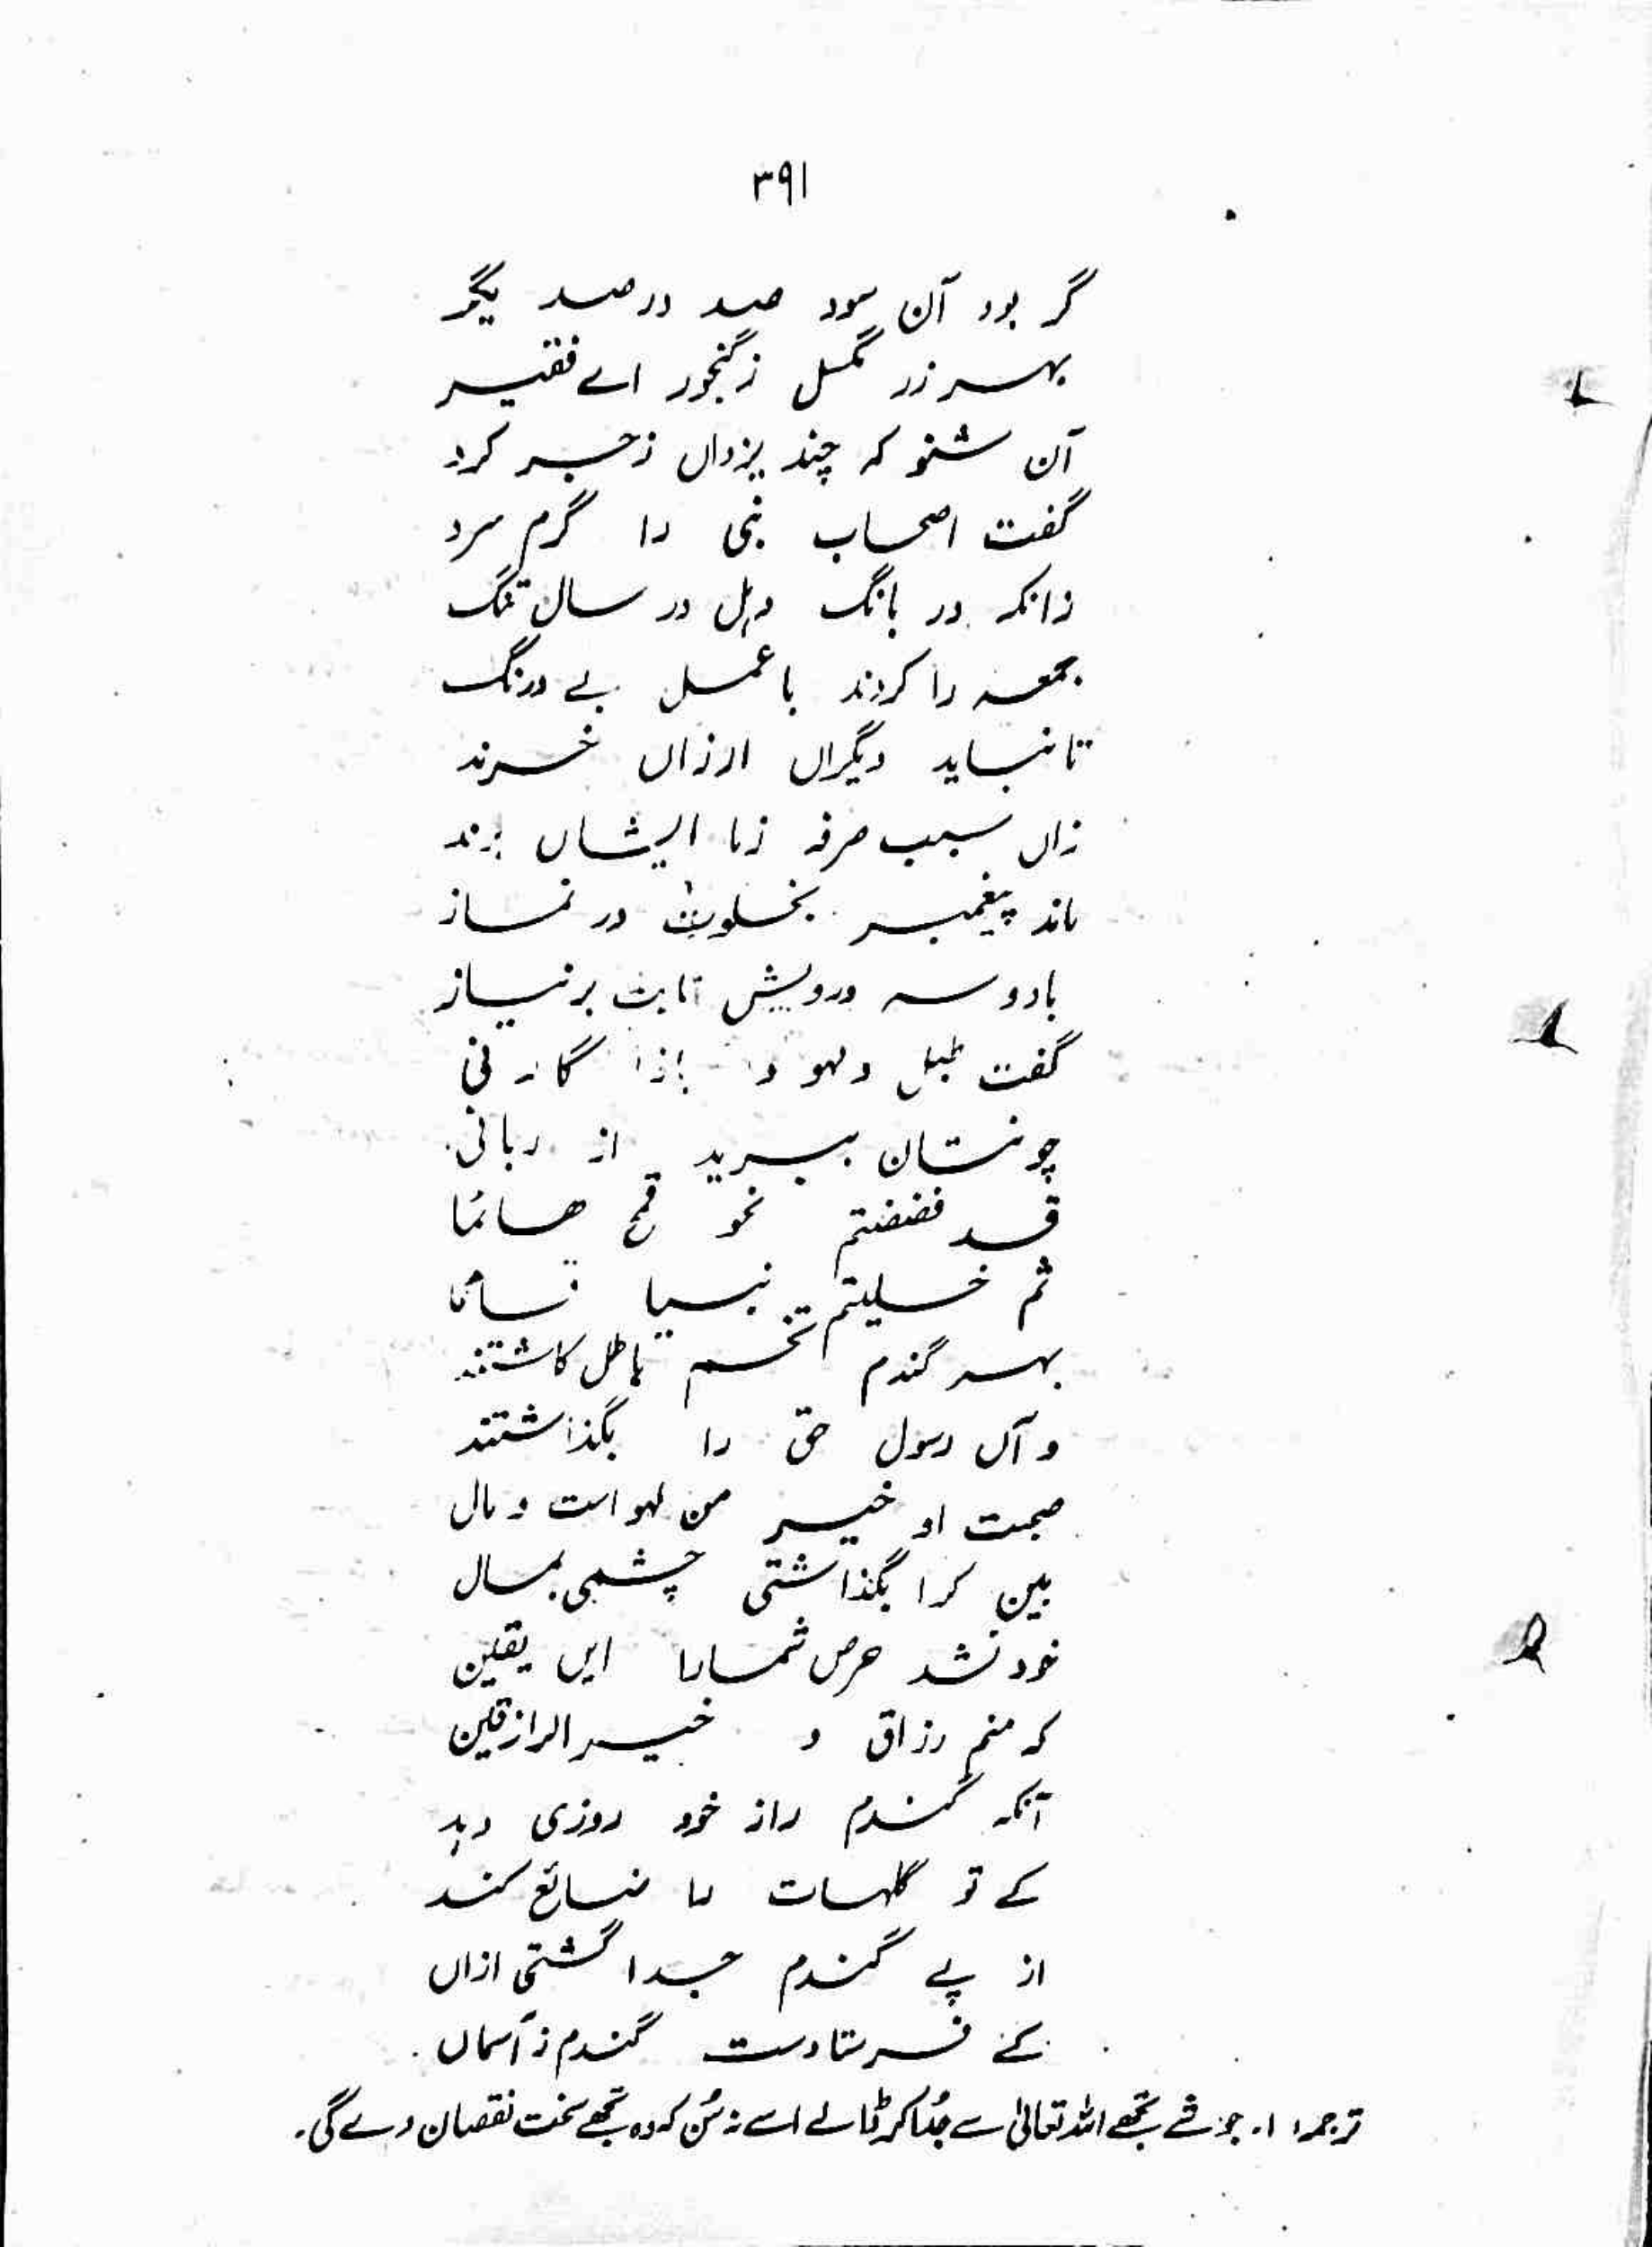 ۳۹۱
گر بود آن سود صد در صد یگیر
بہر زر گمسل زگنجور اے فقیر
آن شنو کہ چند یزداں زجر کرد
گفت اصحاب نبی را گرم سرد
زانکہ در بانگ دہل در سال تنگ
جمعہ را کردند باعمل بے درنگ
تا نباید دیگراں ارزاں خرند
زاں سبب صرفہ زما ایشاں برند
ماند پیغمبر بخلوت در نماز
بادوسہ درویش ثابت بر نیاز
گفت طبل ولہو و
چونشان ببرید از ربانی
قد فضضتم نحو قمح ھائما
ثم خلیتم نبیا قائما
بہر گندم تخم باطل کاشتند
و آں رسول حق را بگذاشتند
صحبت او خیر من لہو است و مال
بین کرا بگذاشتی چشمی بمال
خود نشد حرص شمارا ایں یقین
کہ منم رزاق و خیر الرازقین
آنکہ گندم راز خود روزی دہد
کے تو کلہات را ضائع کند
از پے گندم جدا گشتی ازاں
کے فرستادست گندم ز آسماں
ترجمہ: ۱۔ جو شے تجھے اللہ تعالیٰ سے جُدا کر ڈالے اسے نہ سُن کہ وہ تجھے سخت نقصان دے گی۔